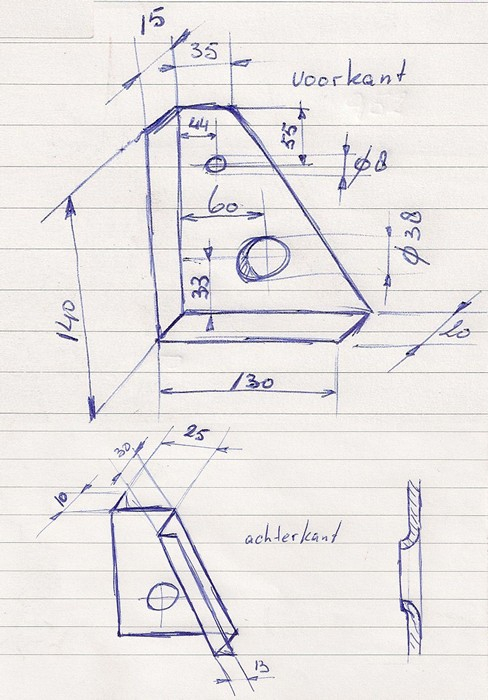 15
35
voorkant
44
55
ø8
60
ø38
33
140
20
130
25
30
10
achterkant
13